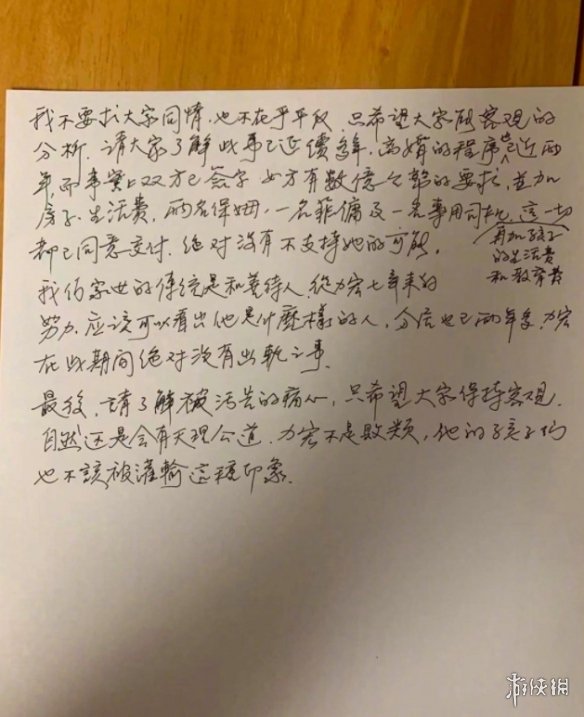 我不要求大家同情,也不在乎平反,只希望大家能客观的
分析.請大家了解此事已延續多年,离婚的程序也已近两
年,而事實上双方已簽字.女方有数億台幣的要求,並加
房子.生活费,两名保姆,一名菲傭及一名專用司机,這一切
再加孩子
都已同意交付.绝对没有不支持她的可能.
的生活费
和教育费
我们家世的傳統是和善待人.從力宏七年来的
努力.应该可以看出他是什麼樣的人,分居也已两年多,力宏
在此期间绝对没有出軌之事.
最後,請了解被污告的痛心,只希望大家保持客观.
自然还是会有天理公道.力宏不是败類,他的孩子们
也不該被灌輸這種印象.
游侠網